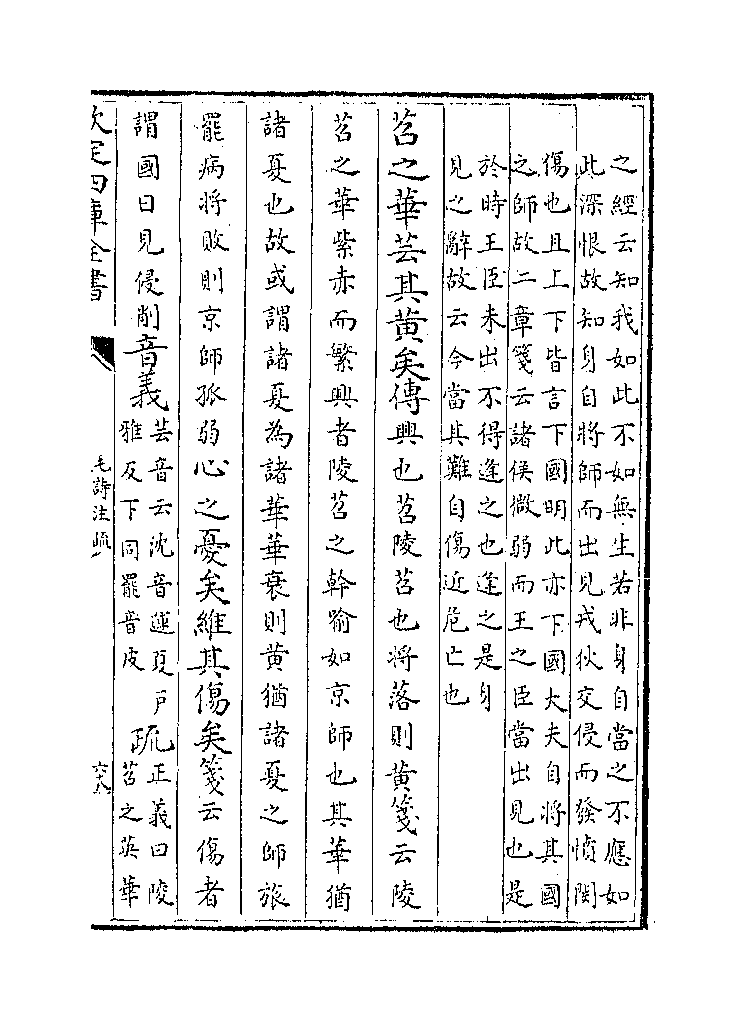 之經云知我如此不如無生若非身自當之不應如
此深恨故知身自將師而出見戎狄交侵而發憤閔
傷也且上下皆言下國明此亦下國大夫自將其國
之師故二章箋云諸侯微弱而王之臣當出見也是
於時王臣未出不得逢之也逢之是身
見之辭故云今當其難自傷近危亡也
苕之華芸其黄矣傳興也苕陵苕也將落則黄箋云陵
苕之華紫赤而繁興者陵苕之幹喻如京師也其華猶
諸夏也故或謂諸夏為諸華華衰則黄猶諸夏之師旅
罷病將敗則京師孤弱心之憂矣維其傷矣箋云傷者
謂國日見侵削音義芸音云沈音運夏戶雅反下同罷音皮疏正義曰陵苕之英華
欽定四庫全書
毛詩注疏